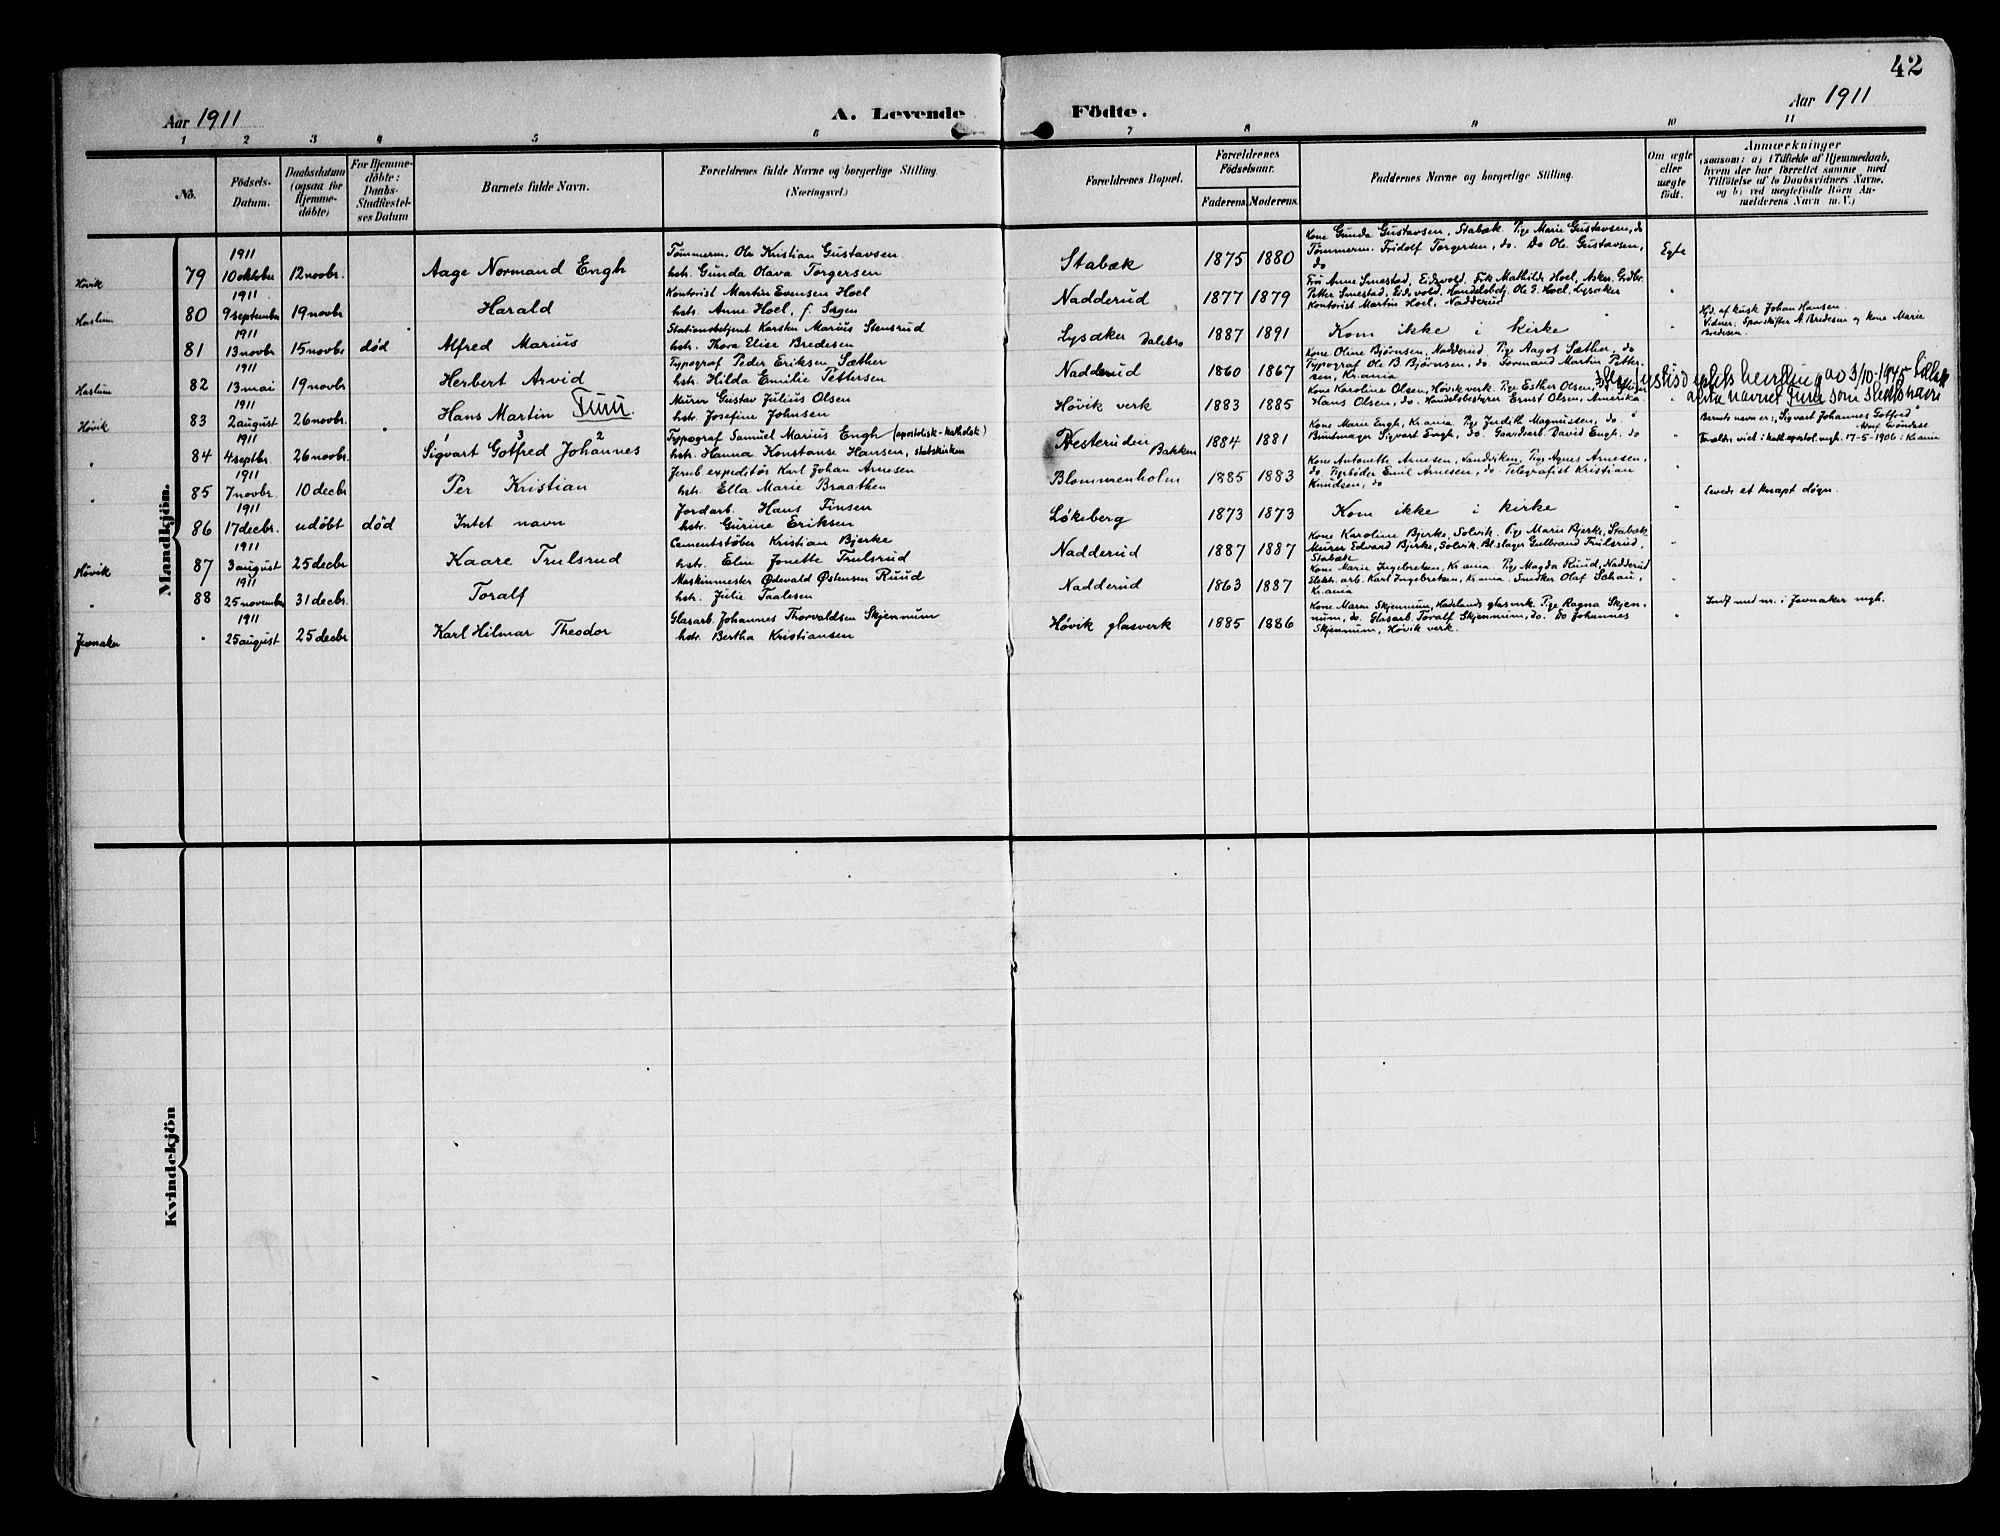 42
Aar 1911
A. Levende Födte.
Aar 1911
1 2 3 4 5 6 7 8 9 10 11
No.
Födsels-
Datum.
Daabsdatum
(ogsaa for
Hjemme-
døbte)
For Hjemme-
døbte:
Daabs-
Stadfæstel-
ses Datum
Barnets fulde Navn.
Forældrenes fulde Navne og borgerlige Stilling.
(Næringsvei.)
Forældrenes Bopæl.
Forældrenes
Födselsaar.
Faderens. Moderens.
Faddernes Navne og borgerlige Stilling.
Om ægte
eller
uægte
født.
Anmærkninger
(saasom: a) i Tilfælde af Hjemmedaab,
hvem der har forrettet samme, med
Tilföielse af to Daabsvidners Navne,
og b) ved uægtefödte Börn An-
melderens Navn m. V.)
Mandkjön.
Høvik
79
1911
10 oktober
12 novbr.
Aage Normand Engh
Tømmerm. Ole Kristian Gustavsen
hstr. Gunda Olava Torgersen
Stabæk
1875 1880
Kone Gunda Gustavsen, Stabæk. Pige Marie Gustavsen, do
Tømmerm. Fridolf Torgersen, do. Do Ole Gustavsen,
do
Egte
Haslum
80
1911
9 september
19 novbr
Harald
Kontorist Martin Evensen Hoel
hstr. Anne Hoel, f. Sagen
Nadderud
1877 1879
Frø Anne Smestad, Eidsvold. Frk Mathilde Hoel, Asker. Grdbr.
Petter Smestad, Eidsvold. Handelsbetj. Ole E. Hoel, Lysaker
Kontorist Martin Hoel, Nadderud
"
81
1911
13 novbr
15 novbr
død
Alfred Marius
Stationsbetjent Karsten Marius Stensrud
hstr. Thora Elise Bredesen
Lysaker Dalebro
1887 1891
Kom ikke i kirke
"
Hjd. af kusk Johan Hansen.
Vidner: Sporskifter A. Bredesen og kone Marie
Bredesen.
Haslum
82
1911
13 mai
19 novbr
Herbert Arvid
Typograf Peder Eriksen Sæther
hstr. Hilda Emilie Pettersen
Nadderud
1860 1867
Kone Oline Bjørnsen, Nadderud. Pige Aagot Sæther, do
Typograf Ole B. Bjørnsen, do. Formand Martin Petter-
sen, Kr.ania
"
Høvik
83
1911
2 august
26 novbr.
Hans Martin Furu
Murer Gustav Julius Olsen
hstr. Josefine Johnsen
Høvik verk
1883 1885
Kone Karoline Olsen, Høvik verk. Pige Esther Olsen,
Hans Olsen, do. Handelsbestyrer Ernst Olsen, Amerika
"
av 3/10-1945
navnet Furu som slektsnavn
"
84
1911
4 septbr.
26 novbr.
Sigvart Gotfred Johannes
1 3 2
Typograf Samuel Marius Engh (apostolisk-katholsk)
hstr. Hanna Konstanse Hansen, statskirken
Hesteruden
Bakken
1884 1881
Kone Marie Engh, Kr.ania. Pige Judith Magnussen, do.
Buntmager Sigvart Engh, do. Gaardarb. David Engh. do
"
Barnets navn er: "Sigvart Johannes Gotfred"
Foreldre viet i kath. apostol. mgh. 17-5-1906 i Kr.ania
"
85
1911
7 novbr.
10 decbr
Per Kristian
Jernb expeditør Karl Johan Arnesen
hstr. Ella Marie Braathen
Blommenholm
1885 1883
Kone Antonette Arnesen, Sandviken. Pige Agnes Arnesen,
do. Fyrbøder Emil Arnesen, do. Telegrafist Kristian
Knudsen, do
"
86
1911
17 decbr.
udøbt
død
Intet navn
Jordarb. Hans Finsen
hstr. Gurine Eriksen
Løkeberg
1873 1873
Kom ikke i kirke
"
Levede et knapt døgn.
Høvik
87
1911
3 august
25 decbr
Kaare Trulsrud
Cementstøber Kristian Bjerke
hstr. Elen Jonette Trulsrud
Nadderud
1887 1887
Kone Karoline Bjerke, Solvik. Pige Marie Bjerke, Stabæk
Murer Edvard Bjerke, Solvik. Bl.slager Gulbrand Trulsrud,
Stabæk
"
"
88
1911
25 november
31 decbr.
Toralf
Maskinmester Ødevald Østensen Ruud
hstr. Julie Taalesen
Nadderud
1863 1887
Kone Marie Ingebretsen, Kr.ania. Pige Magda Ruud, Nadderud
Elektr. arb. Karl Ingebretsen, Kr.ania. Snedker Olaf Schau,
Kr.ania
"
Jevnaker
"
1911
25 august
25 decbr
Karl Hilmar Theodor
Glasarb. Johannes Thorvaldsen Skjennum
hstr. Bertha Kristiansen
Høvik glasverk
1885 1886
Kone Maren Skjennum, Hadelands glasverk. Pige Ragna Skjen-
num, do. Glasarb. Toralf Skjennum, do. Do Johannes
Skjennum, Høvik verk.
"
Indf med nr. i Jevnaker mgh.
Kvindekjön